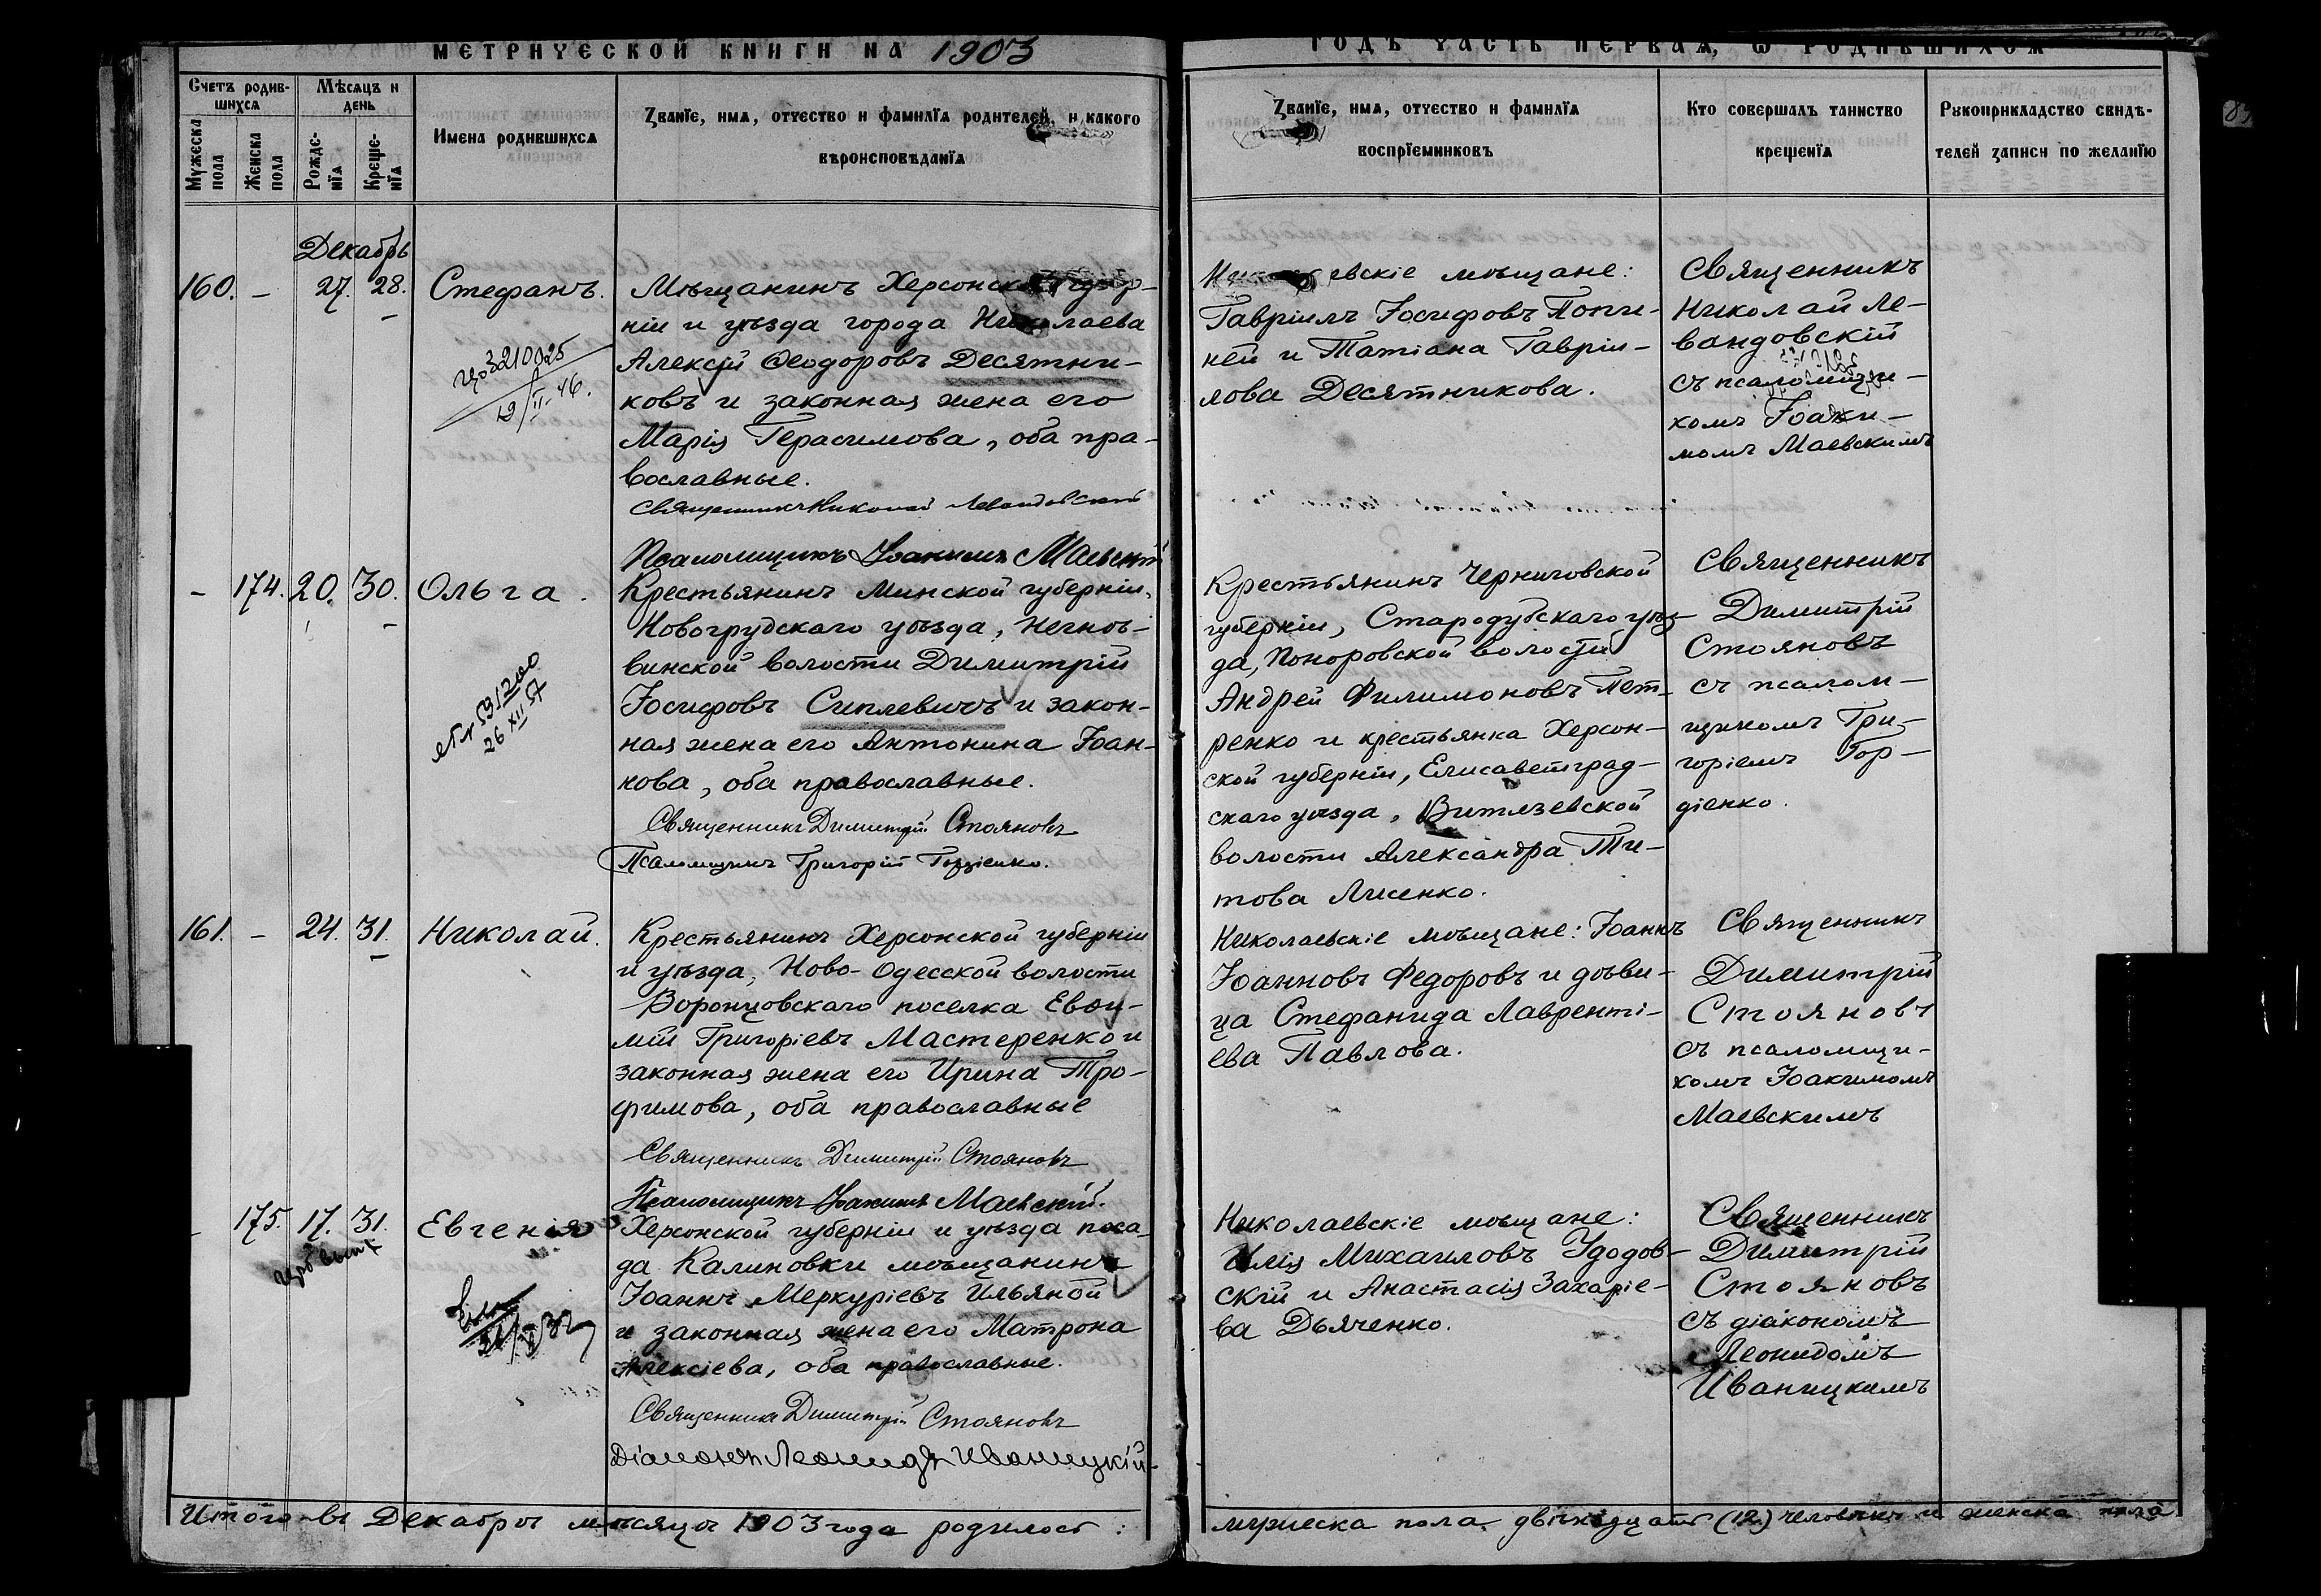 МЕТРИЧЕСКОЙ КНИГИ НА 1903
ГОДЪ ЧАСТЬ ПЕРВАЯ, Ѡ РОДИВШИХСЯ
Счетъ родив-
шихся
Мѣсяцъ и
день
Мужеска
пола
Женска
пола
Рожде-
нїя
Креще-
нїя
Имена родившихся
Званїе, имя, отчество и фамилїя родителей, и какого
вѣроисповѣданїя
Званїе, имя, отчество и фамилїя
воспрїемниковъ
Кто совершалъ таинство
крещенїя
Рукоприкладство свидѣ-
телей записи по желанїю
Декабрь
160. – 27. 28. Стефанъ.
3210025
19/II-46.
Мѣщанинъ Херсонской губер-
ніи и уѣзда города Николаева
Алексій Ѳеодоровъ Десятни-
ковъ и законная жена его
Марія Герасимова, оба пра-
вославные.
Священникъ Николай Левандовскій
Псаломщикъ Іоакимъ Маевскій
евскіе мѣщане:
Гавріилъ Іосифовъ
ней и Татіана Гаврiи-
лова Десятникова.
Священникъ
Николай Ле-
вандовскій
съ псаломщи-
комъ Іоаки-
момъ Маевскимъ
– 174. 20. 30. Ольга.
591200
26 XII 57
Крестьянинъ Минской губерніи,
Новогрудскаго уѣзда, Негнѣ-
винской волости Димитрій
Іосифовъ Сиплевичъ и закон-
ная жена его Антонина Іоан-
нова, оба православные.
Священникъ Димитрій Стояновъ
Псаломщикъ Григорій Гордіенко.
Крестьянинъ Черниговской
губерніи, Стародубскаго уѣз-
да, Поноровской волости
Андрей Филимоновъ Пет-
ренко и крестьянка Херсон-
ской губерніи, Елисаветград-
скаго уѣзда, Витязевской
волости Александра Ти-
това Лисенко.
Священникъ
Димитрій
Стояновъ
съ псалом-
щикомъ Гри-
горіемъ Гор-
діенко.
161. – 24. 31. Николай.
Крестьянинъ Херсонской губерніи
и уѣзда, Ново-Одесской волости
Воронцовскаго поселка Евѳи-
мій Григоріевъ Мастеренко и
законная жена его Ирина Тро-
фимова, оба православные
Священникъ Димитрій Стояновъ
Псаломщикъ Іоакимъ Маевскій.
Николаевскіе мѣщане: Іоаннъ
Іоанновъ Федоровъ и дѣви-
ца Стефанида Лаврентi-
ева Павлова.
Священникъ
Димитрій
Стояновъ
съ псаломщи-
комъ Іоакимомъ
Маевскимъ
– 175. 17. 31. Евгенія
Херсонской губерніи и уѣзда поса-
да Калиновки мѣщанинъ
Іоаннъ Меркуріевъ Ильяной
и законная жена его Матрона
Алексіева, оба православные.
Священникъ Димитрій Стояновъ
Діаконъ Леонидъ Иваницкій
Николаевскіе мѣщане:
Илія Михаиловъ Удодов-
скій и Анастасія Захаріе-
ва Дьяченко.
Священникъ
Димитрій
Стояновъ
съ діакономъ
Леонидомъ
Иваницкимъ
Итого въ Декабрѣ мѣсяцѣ 1903 года родилось:
мужеска пола двѣнадцать (12) человѣкъ и женска пола